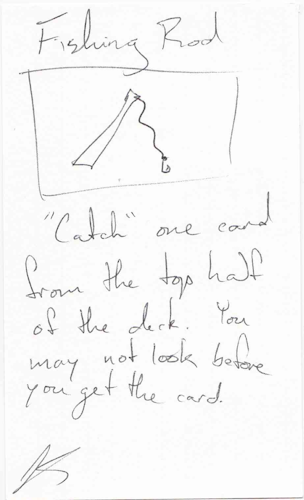 Fishing Rod
"Catch" one card
from the top half
of the deck. You
may not look before
you get the card.